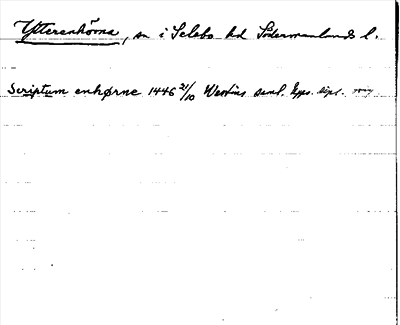 Ytterenhörna, sn i Selebo hd Södermanlands l.
Scriptum enhørne 1446 21/10 Westins saml. Upps. dipl.